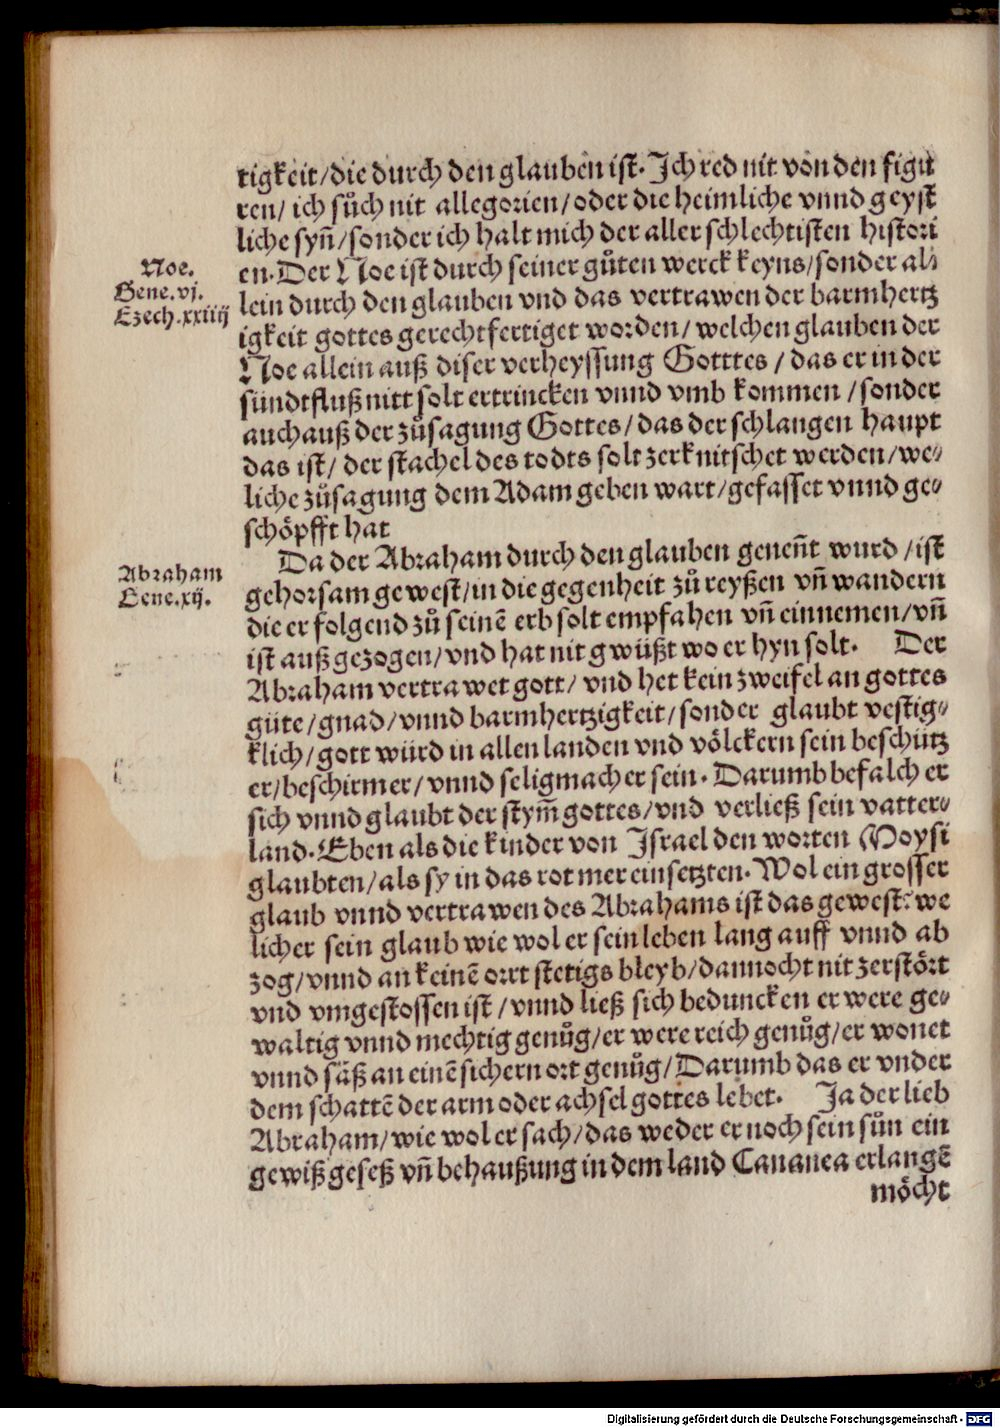 tigkeit/die durch den glauben ist. Ich red nit von den figu
ren/ ich sůch nit allegorien/oder die heimliche vnnd geyst
liche syn̄/sonder ich halt mich der aller schlechtisten histori
en. Der Noe ist durch seiner gůten werck keyns/sonder al⸗
lein durch den glauben vnd das vertrawen der barmhertz
igkeit gottes gerechtfertiget worden/ welchen glauben der
Noe allein auß diser verheyssung Gotttes / das er in der
sündtfluß nitt solt ertrincken vnnd vmb kommen /sonder
auch auß der zůsagung Gottes/ das der schlangen haupt
das ist/ der stachel des todts solt zerknitschet werden/we⸗
liche zůsagung dem Adam geben wart/gefasset vnnd ge⸗
schöpfft hat
Noe.
Gene.vj.
Ezech.xxiiij
Da der Abraham durch den glauben genen̄t wurd /ist
gehorsam gewest/in die gegenheit zů reyßen vn̄ wandern
die er folgend zů seinē erb solt empfahen vn̄ einnemen/vn̄
ist außgezogen/vnd hat nit gwüßt wo er hyn solt. Der
Abraham vertrawet gott/ vnd het kein zweifel an gottes
güte/gnad/vnnd barmhertzigkeit/sonder glaubt vestig⸗
klich/gott würd in allen landen vnd völckern sein beschütz
er/beschirmer/vnnd seligmacher sein. Darumb befalch er
sich vnnd glaubt der stym̄ gottes/vnd verließ sein vatter⸗
land. Eben als die kinder von Israel den worten Moysi
glaubten/als sy in das rot mer einsetzten. Wol ein grosser
glaub vnnd vertrawen des Abrahams ist das gewest: we
licher sein glaub wie wol er sein leben lang auff vnnd ab
zog/vnnd an keinē orrt stetigs bleyb/dannocht nit zerstört
vnd vmgestossen ist /vnnd ließ sich beduncken er were ge⸗
waltig vnnd mechtig genůg/er were reich genůg/er wonet
vnnd säß an einē sichern ort genůg/Darumb das er vnder
dem schattē der arm oder achsel gottes lebet. Ja der lieb
Abraham/wie wol er sach/das weder er noch sein sůn ein
gewiß geseß vn̄ behaußung in dem land Cananea erlangē
möcht
Abraham
Gene.xij.
Digitalisierung gefördert durch die Deutsche Forschungsgemeinschaft - DFG